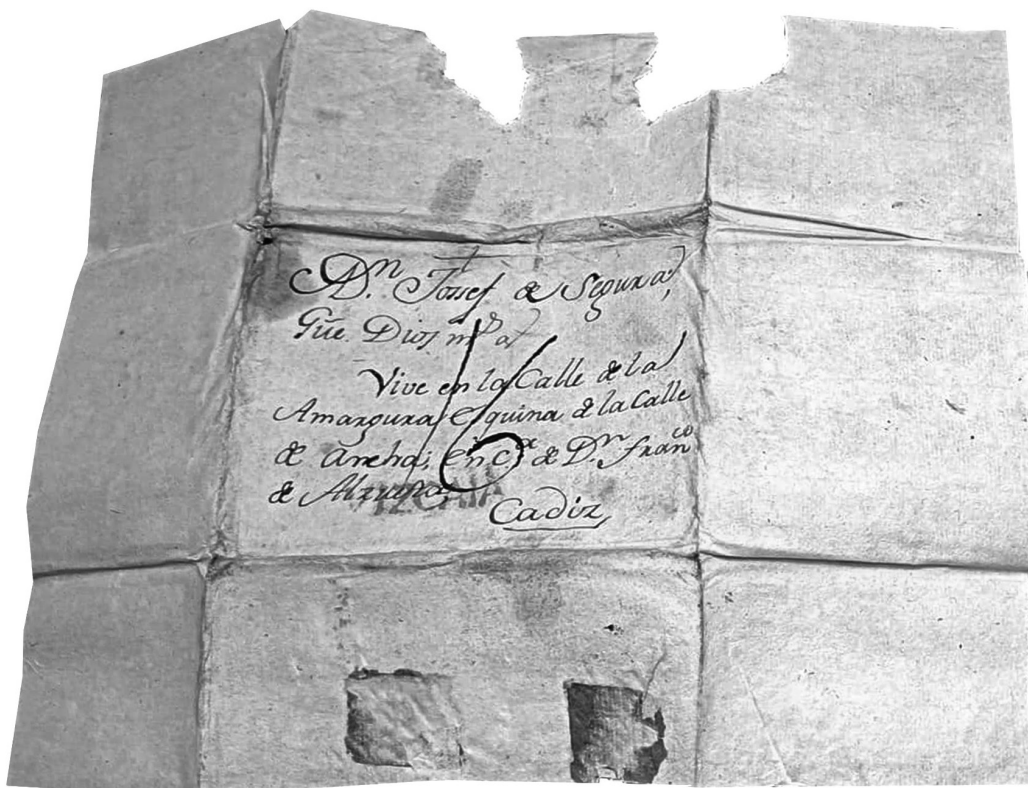 Dn. Jossef de Segura,
Gũe Dios ms. a
Vive en la Calle de la
Amargura, esquina de la Calle
de Ancha, en c.a de Dn. Franco
de
Cadiz,